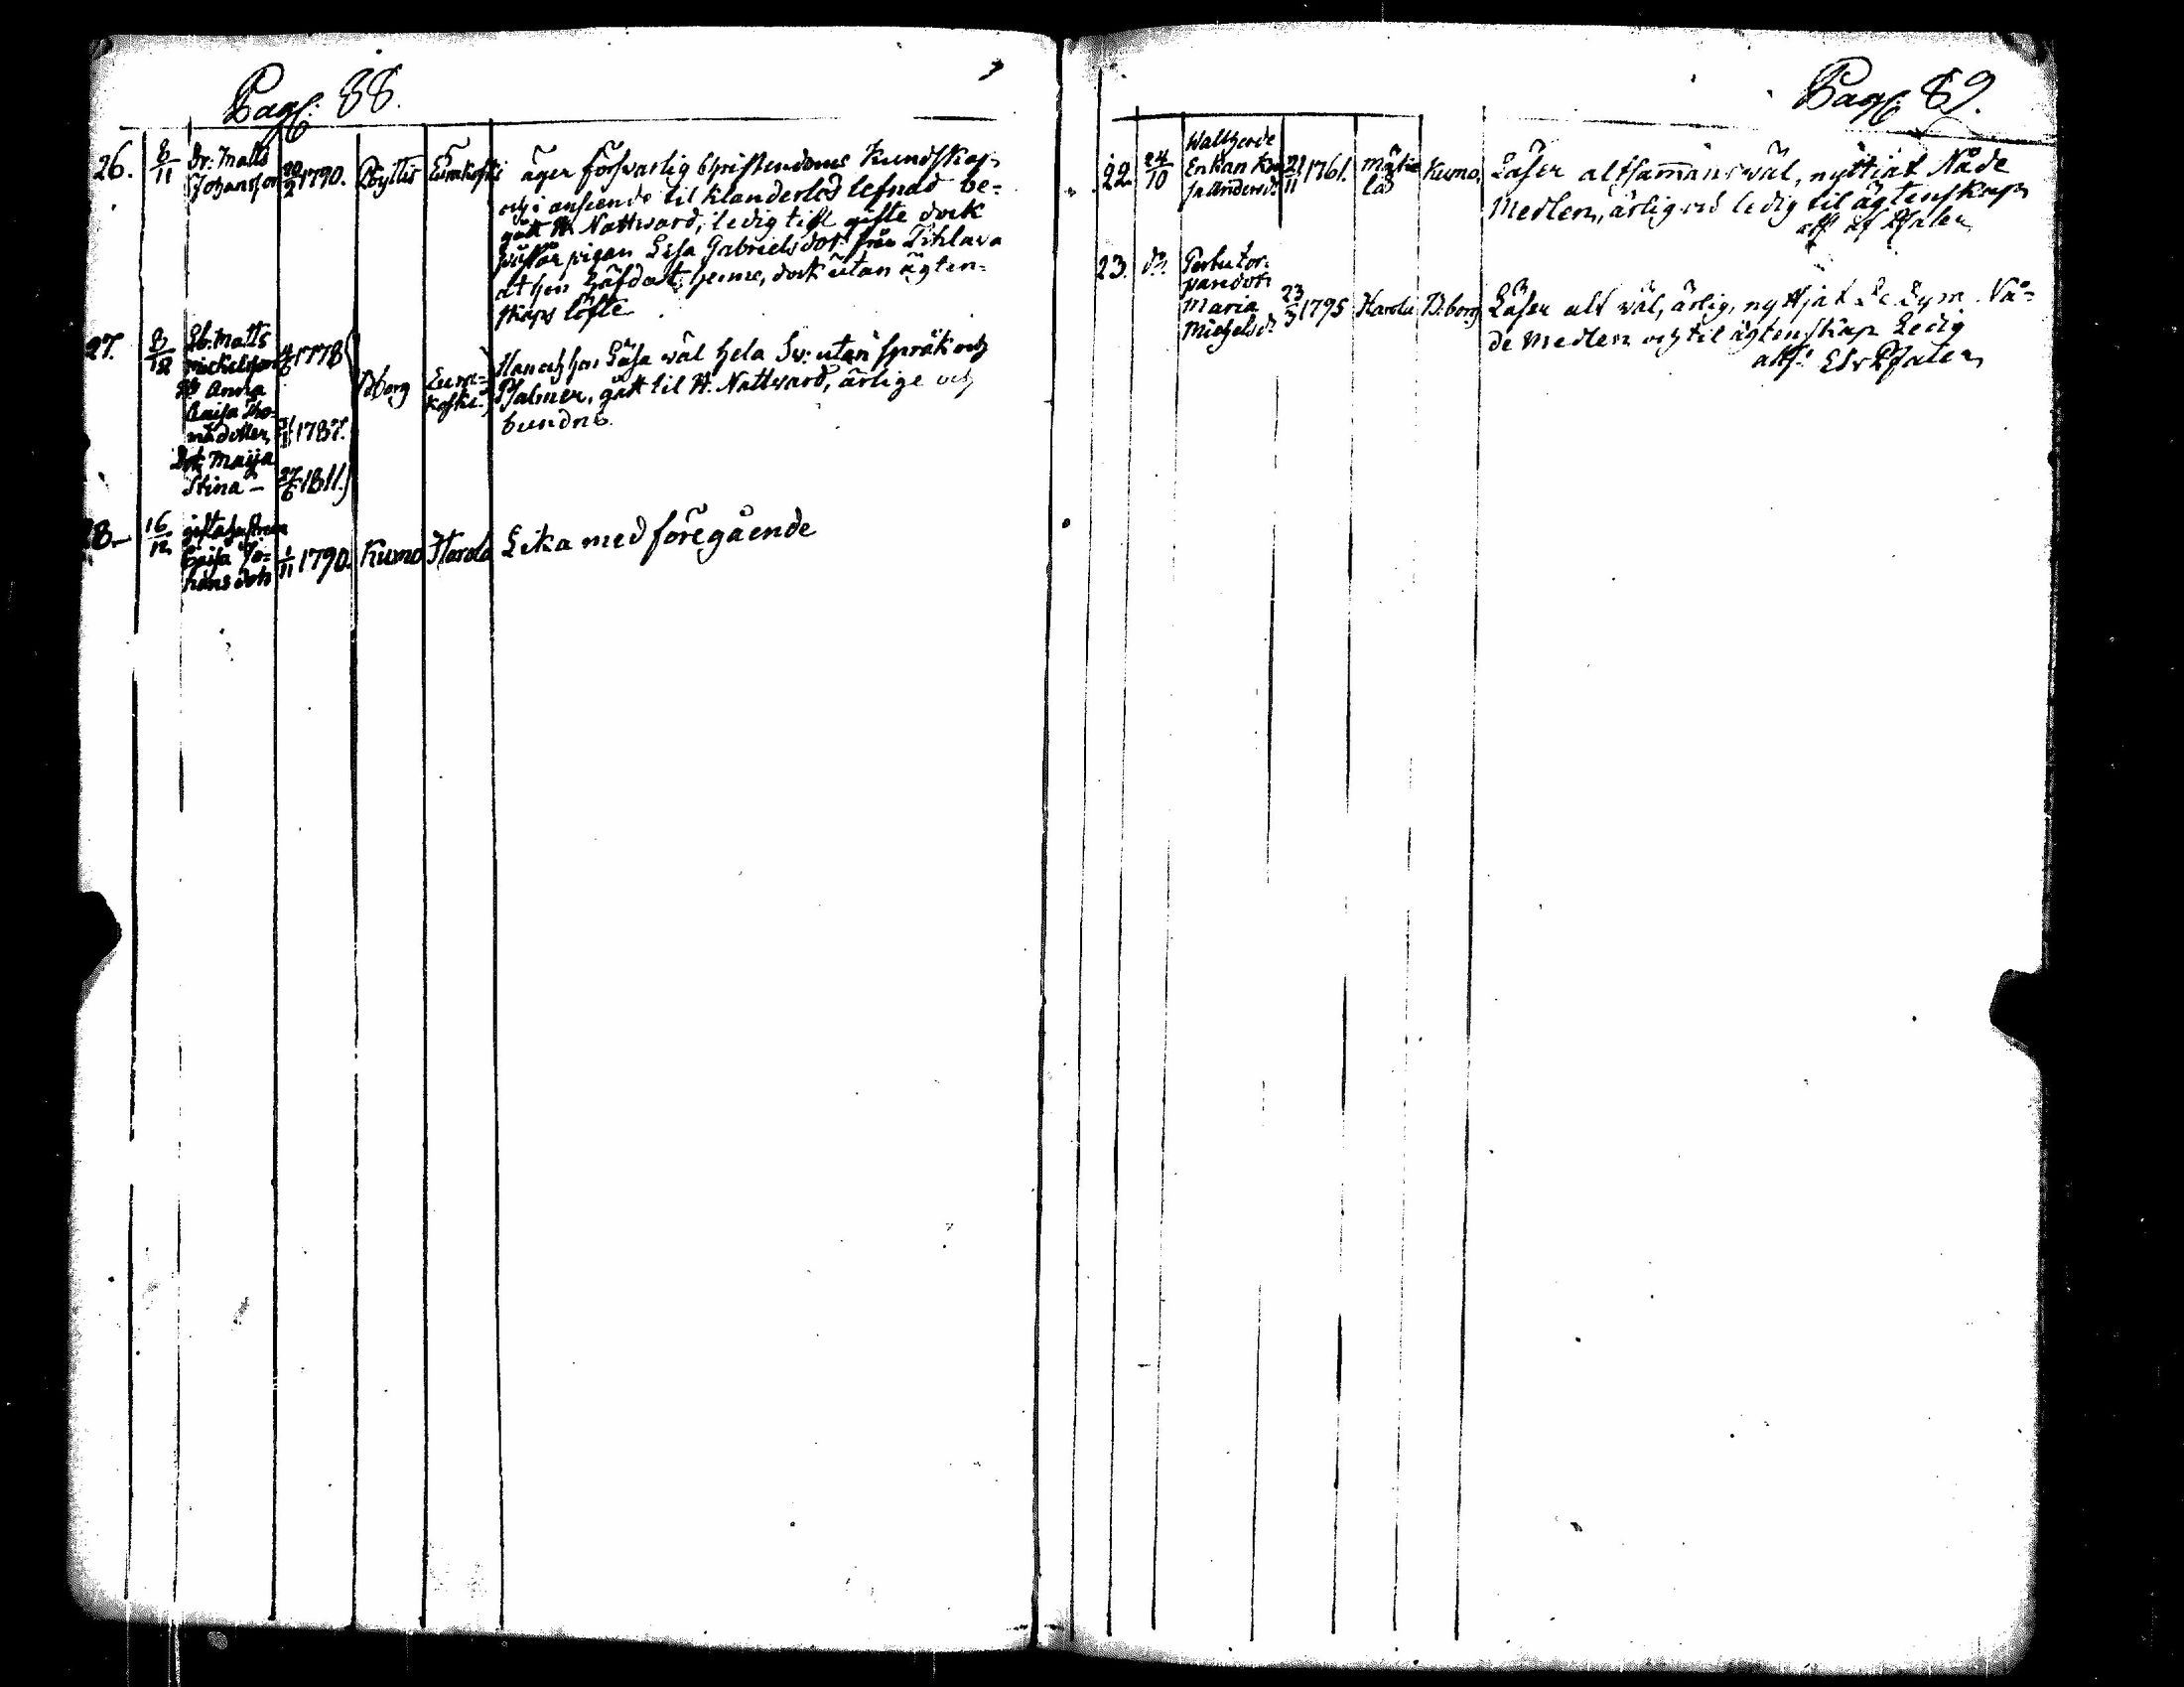 Pag: 88.
26. 8/11 Dr: Matts
Johansson 20/2 1790. Eurakoski
äger försvarlig Christendoms Kundskap
och i anseende til Klanderlös lefnad be=
gått H. Nattward, ledig till gifte dock
påstår pigan Lisa Gabrielsdot från
at han häfdat henne, dock utan ägten=
skaps löfte
27. 8/12 Matts
Mickelsson 1778
H Anna
Caisa Tho=
madotter 1787.
Dot: Maija
Stina – 27/6 1811.
Bborg Eura=
koski.
Han och hon Läsa wäl hela Sv: utan språk och
Psalmer, gått til H. Nattward, ärlige och
bundne.
28.– 16/12 gifta hustrun
Caisa Jo=
hansdotr 1/11 1790. Kumo Harola Lika med föregående
Pag: 89.
22. 24/10 Wallherde
Enkan
Andersd. 21/11 1761. Kumo,
Läser altsammans wäl, nyttjat Nåde
Medlen, ärlig och ledig til ägtenskap
att: af Psalen
23. d:o tor=
paredotr
Maria
Michelsdr 23/3 1795 Harola B:borg
Läser alt wäl, ärlig, nyttjat Nå=
de Medlen och til ägtenskap Ledig
att: